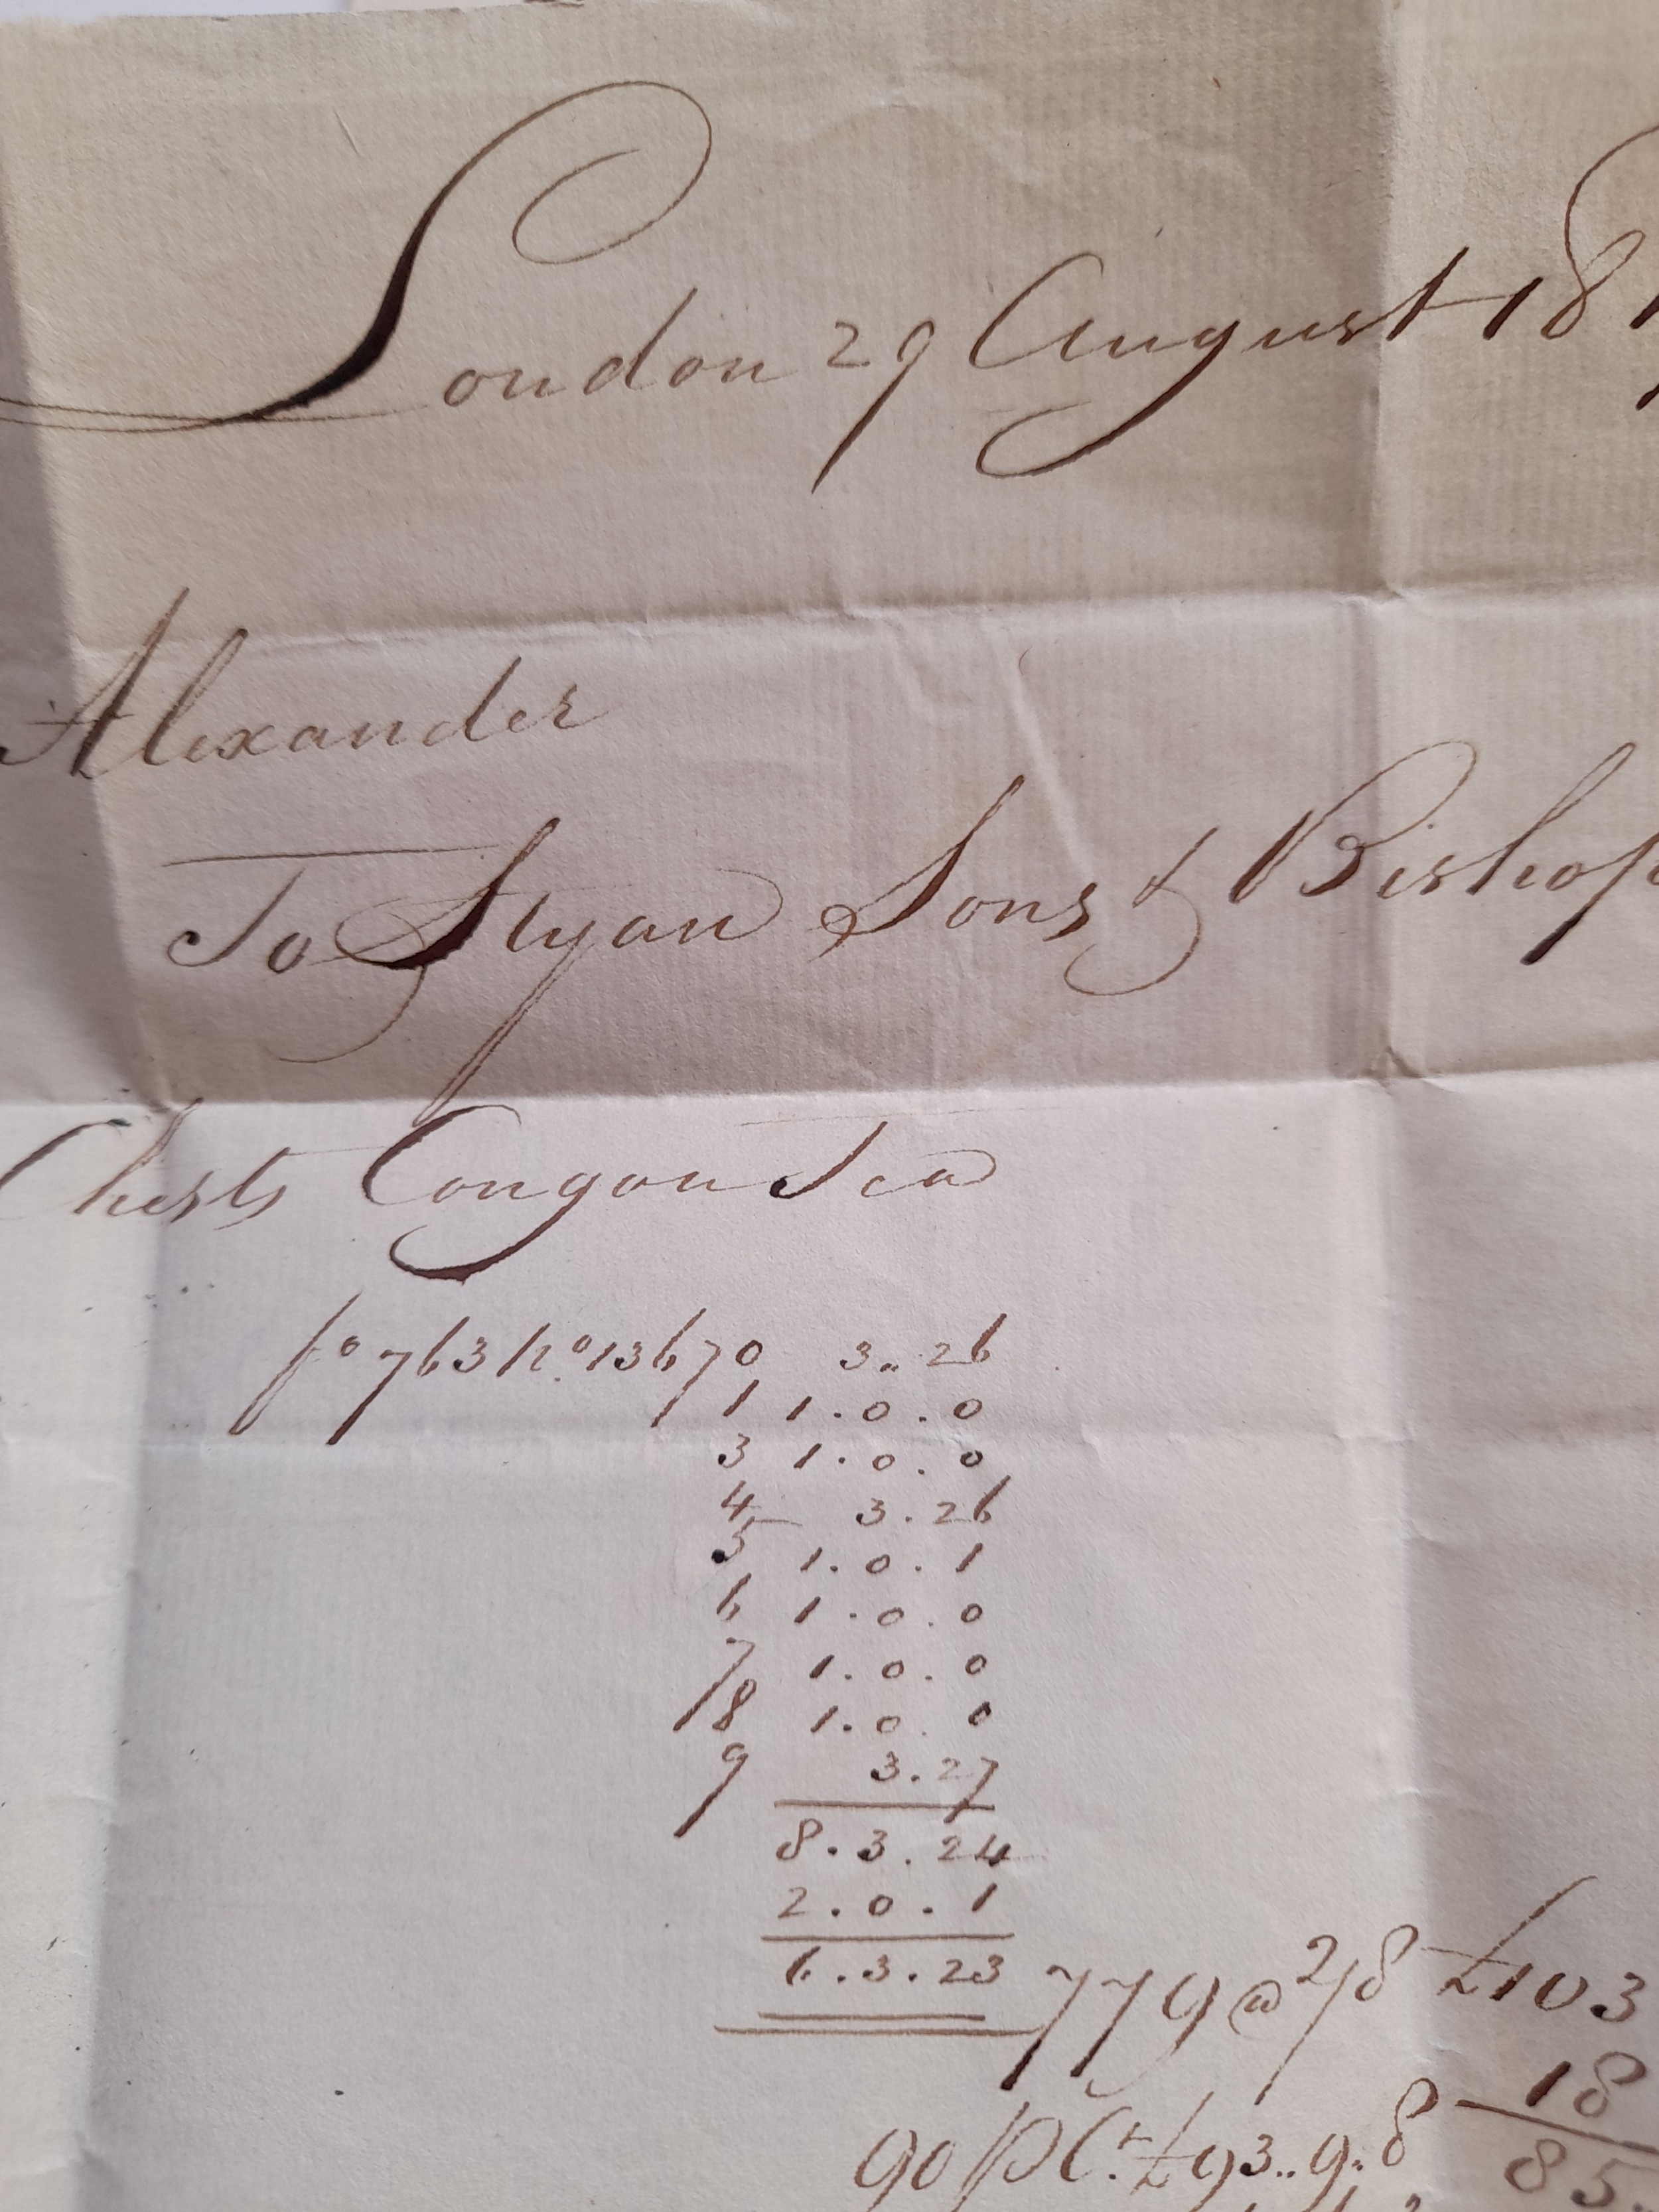 London 29 August 18
Alexander
To Styan Sons & Bishop
Chests Congou Tea
fo 763 No 13670 3.. 26
1 1.0.0
3 1.0.0
4 3.26
5 1.0.1
6 1.0.0
7 1.0.0
8 1.0.0
9 3.27
8.3.24
2.0.1
6.3.23 779 @ 2/8 £103
18
90 P Ct £93..9.8 85